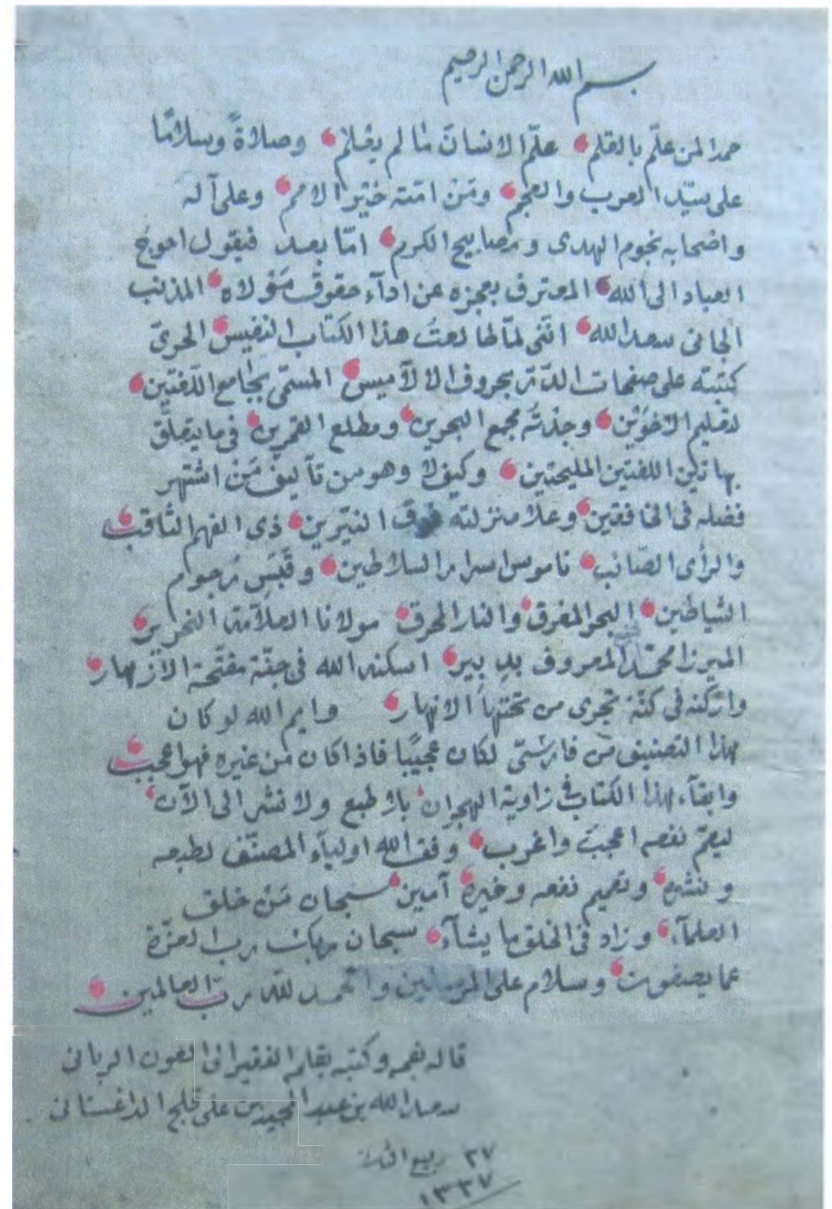 بسم الله الرحمن الرحيم
حمدا لمن علّم بالقلم علّم الانسان مَا لم يعْلم وصلاةً وسلامًا
على سيّد العرب والعجم ومَن امّته خَيْر الامم وعلى آله
واصْحابه نجوم الهدى ومصابيح الكرم امّا بعد فيقول احوج
العباد الى الله المعترف بعجزه عن ادآء حقوق مَوْلاه المذنب
الجانى سعد الله انّنى لمّا طالعتُ هذا الكتاب النفيس الحرىّ
كتبته على صفحات الدّر بحروف الالآميس المسمّى بجَامع اللّغتين
لتعليم الاخوَيْن وجدْتُه مجمع البحرين ومطلع القمرين فى ما يتعلّق
بهاتين اللغتين المليحتين وكيف لا وهو من تأليف مَن اشتهر
فضله فى الخافقين وعلا منزلته فوق النيّرين ذى الفهم الثاقب
والرأى الصّائب ناموس اسرار السلاطين وقَبَسِ رجوم
الشياطين البحر المغرق والنار المحرق مولانا العلاّمة النحرير
الميرزا محمّد المعروف بدِبير اسكنه الله فى جنّة مفتّحة الازهار
واركنه فى كنّة تجرى من تحتها الانهار وايم الله لو كان
هذا التصنيف من فارسّى لكان عجيبًا فاذا كان مَن غيره فهو اعجب
وابقآء هذا الكتاب فى زاوية الهجران بلا طبع ولا نشر الى الآن
ليعمّ نفعه اعجبَ واغرب وفق الله اوليآء المصنّف لطبعه
ونشره وتعميم نفعه وخيره آمين سبحان مَن خلق
العلمآء وزاد فى الخلق ما يشآء سبحان ربك رب العزّة
عما يصفون وسلام على المرسلين والحمد لله رب العالمين
قاله بفمه وكتبه بقلمه الفقير الى العون الربانى
سعد الله بن عبد المجيد بن على قلج الداغستانى
٢٧ ربيع
١٣٣٧